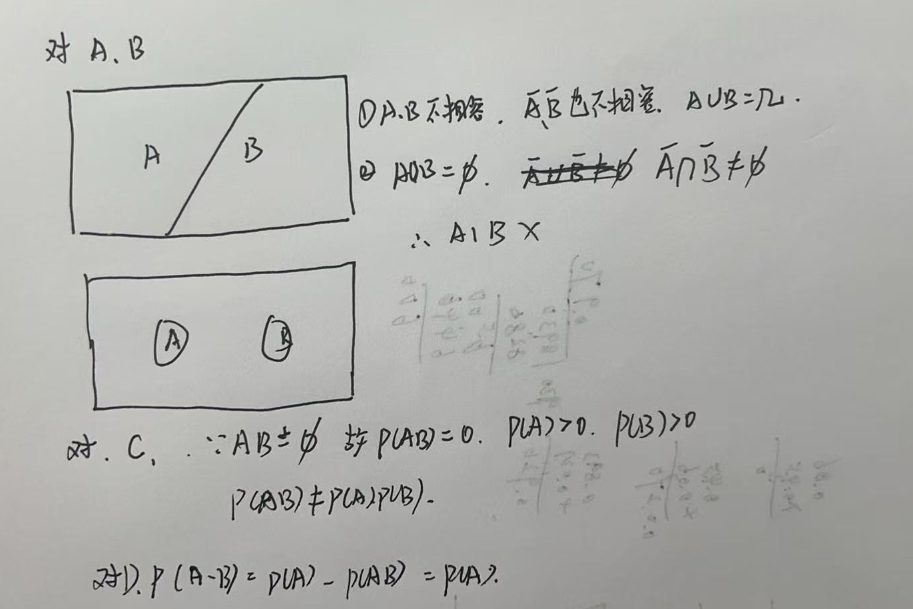 对 A、B
A
B
① A.B 不相容, A̅、B̅ 也不相容. A∪B=Ω.
② A∩B=∅. A̅∩B̅≠∅
∴ A、B ×
A
B
对. C, ∵AB=∅ 故 P(AB)=0. P(A)>0. P(B)>0
P(AB)≠P(A)P(B).
对D. P(A-B)=P(A)-P(AB)=P(A).